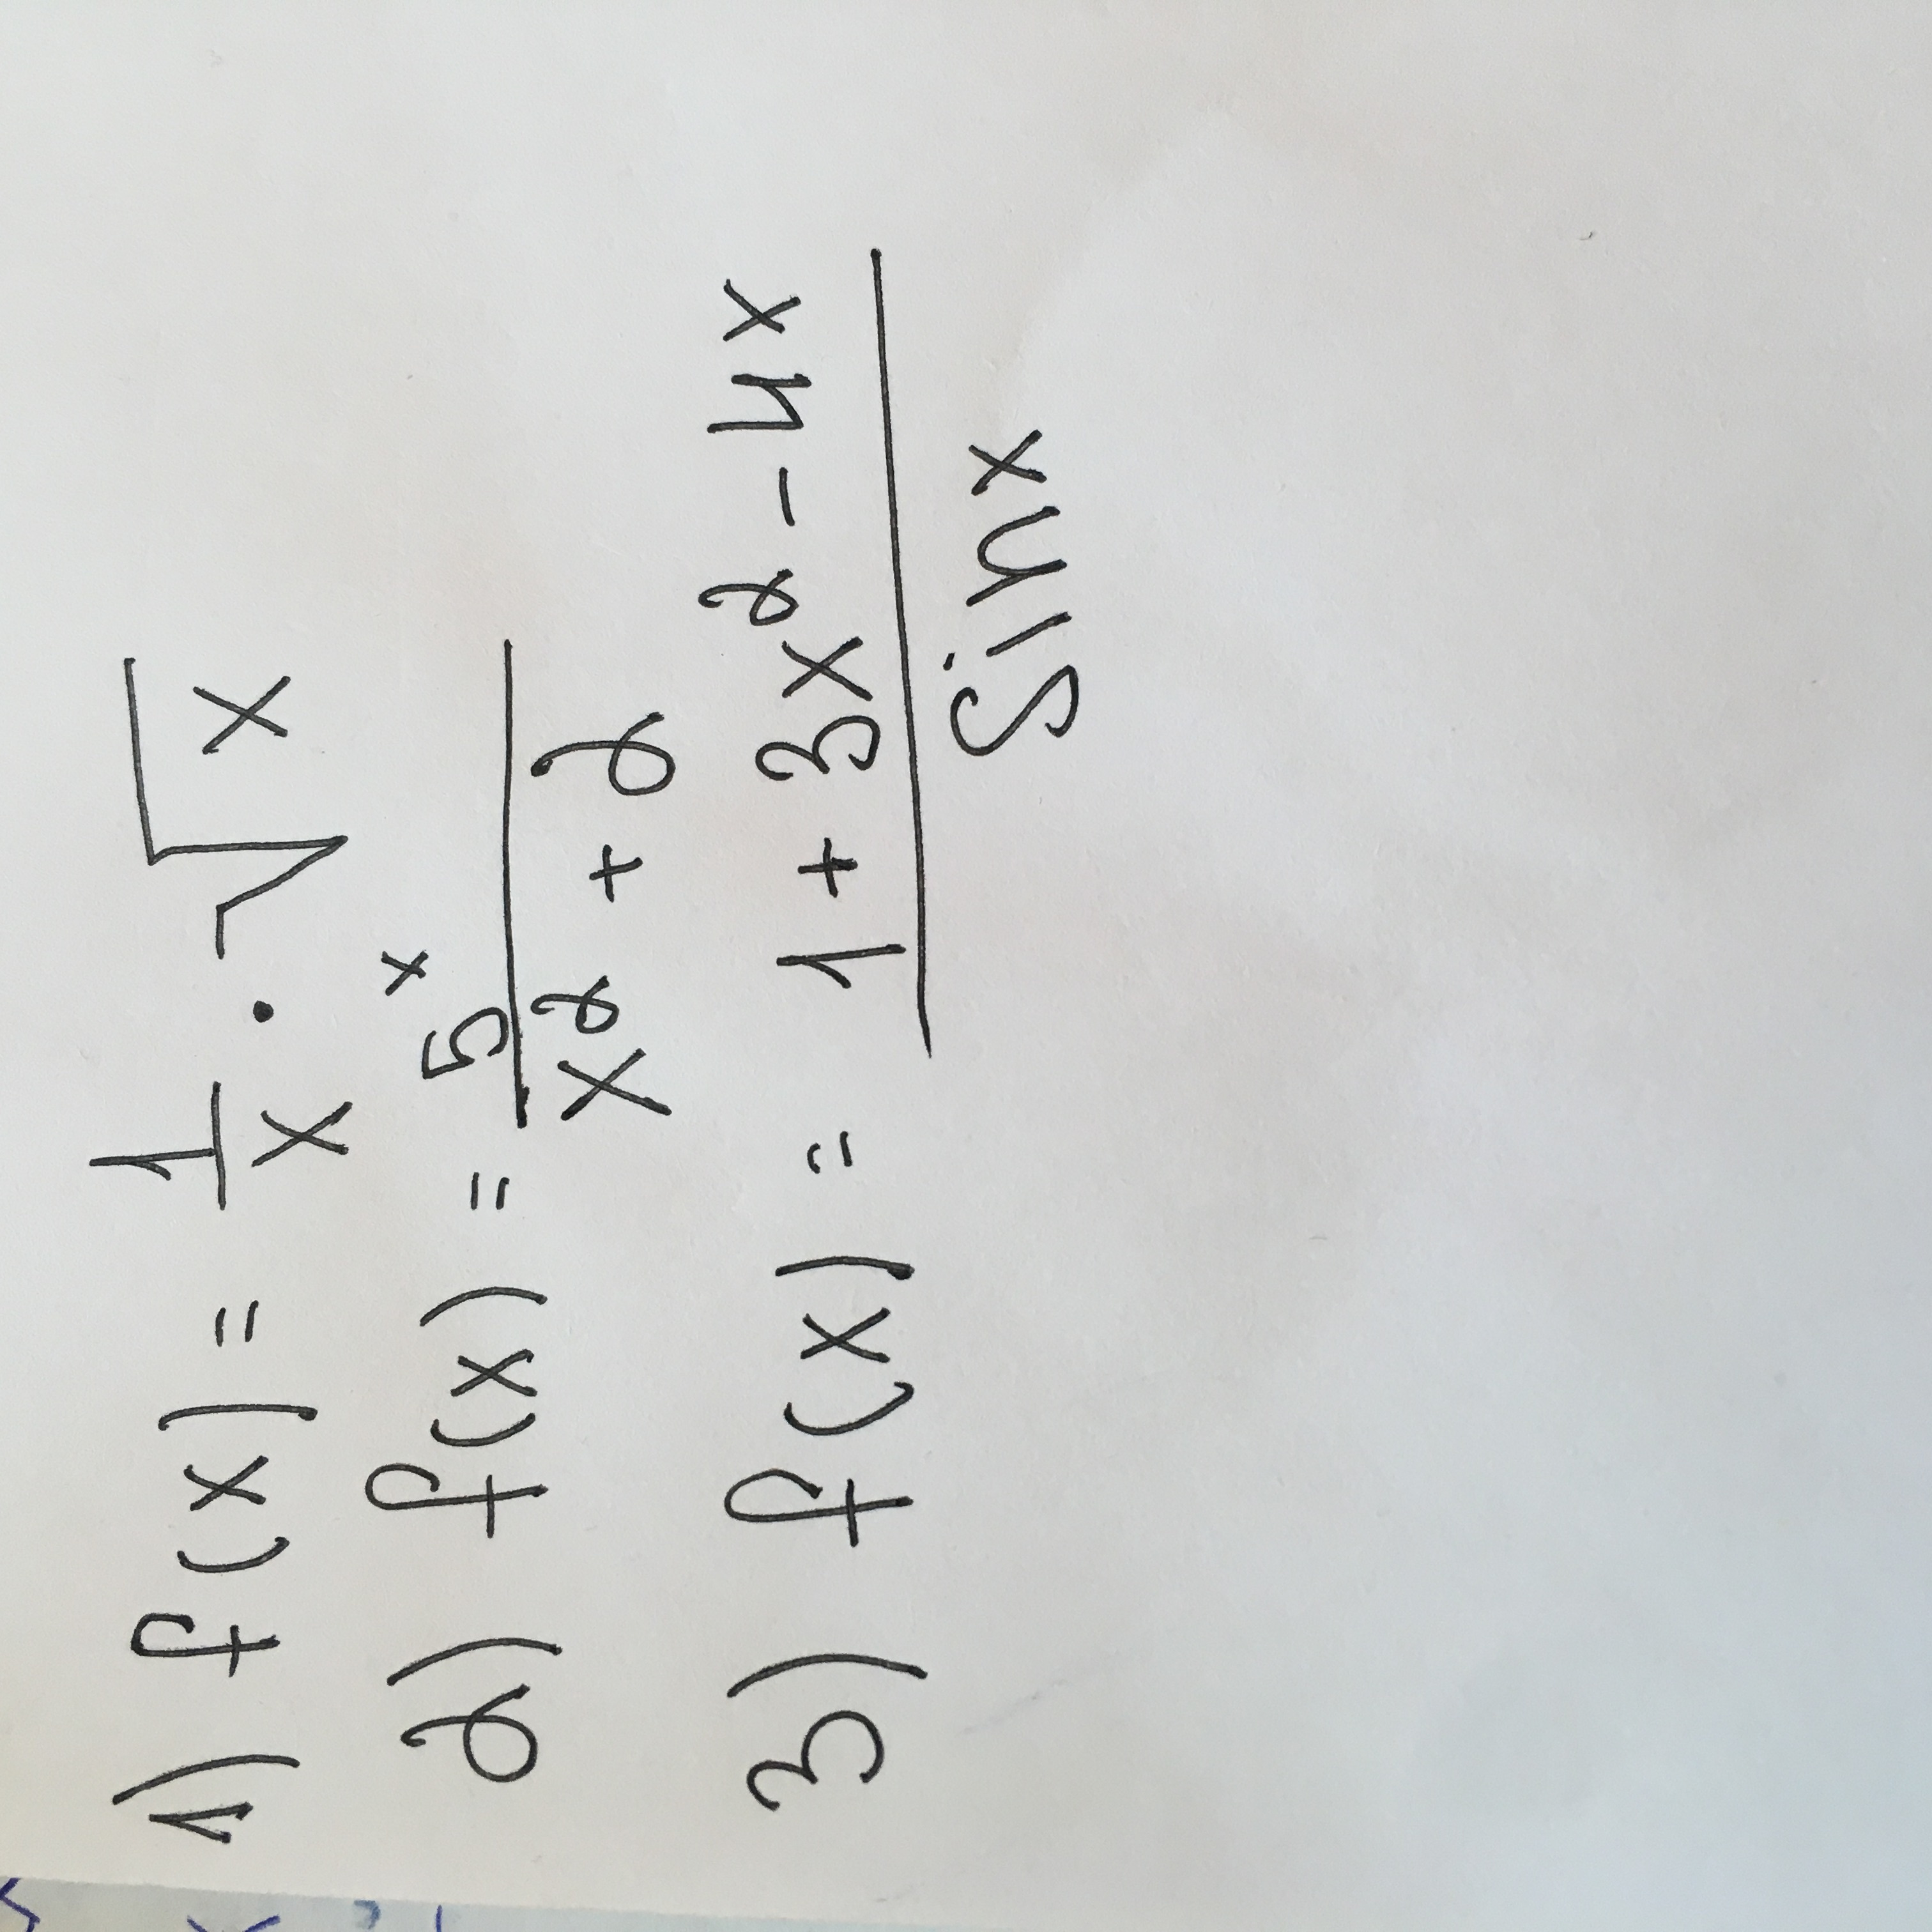 1) f(x) = 1/x · √x
2) f(x) = 5^x/(x² + 2)
3) f(x) = (1 + 3x² - 4x)/sinx